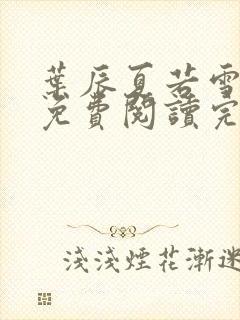 葉辰夏若雪
免費閱讀完
淺淺煙花漸迷